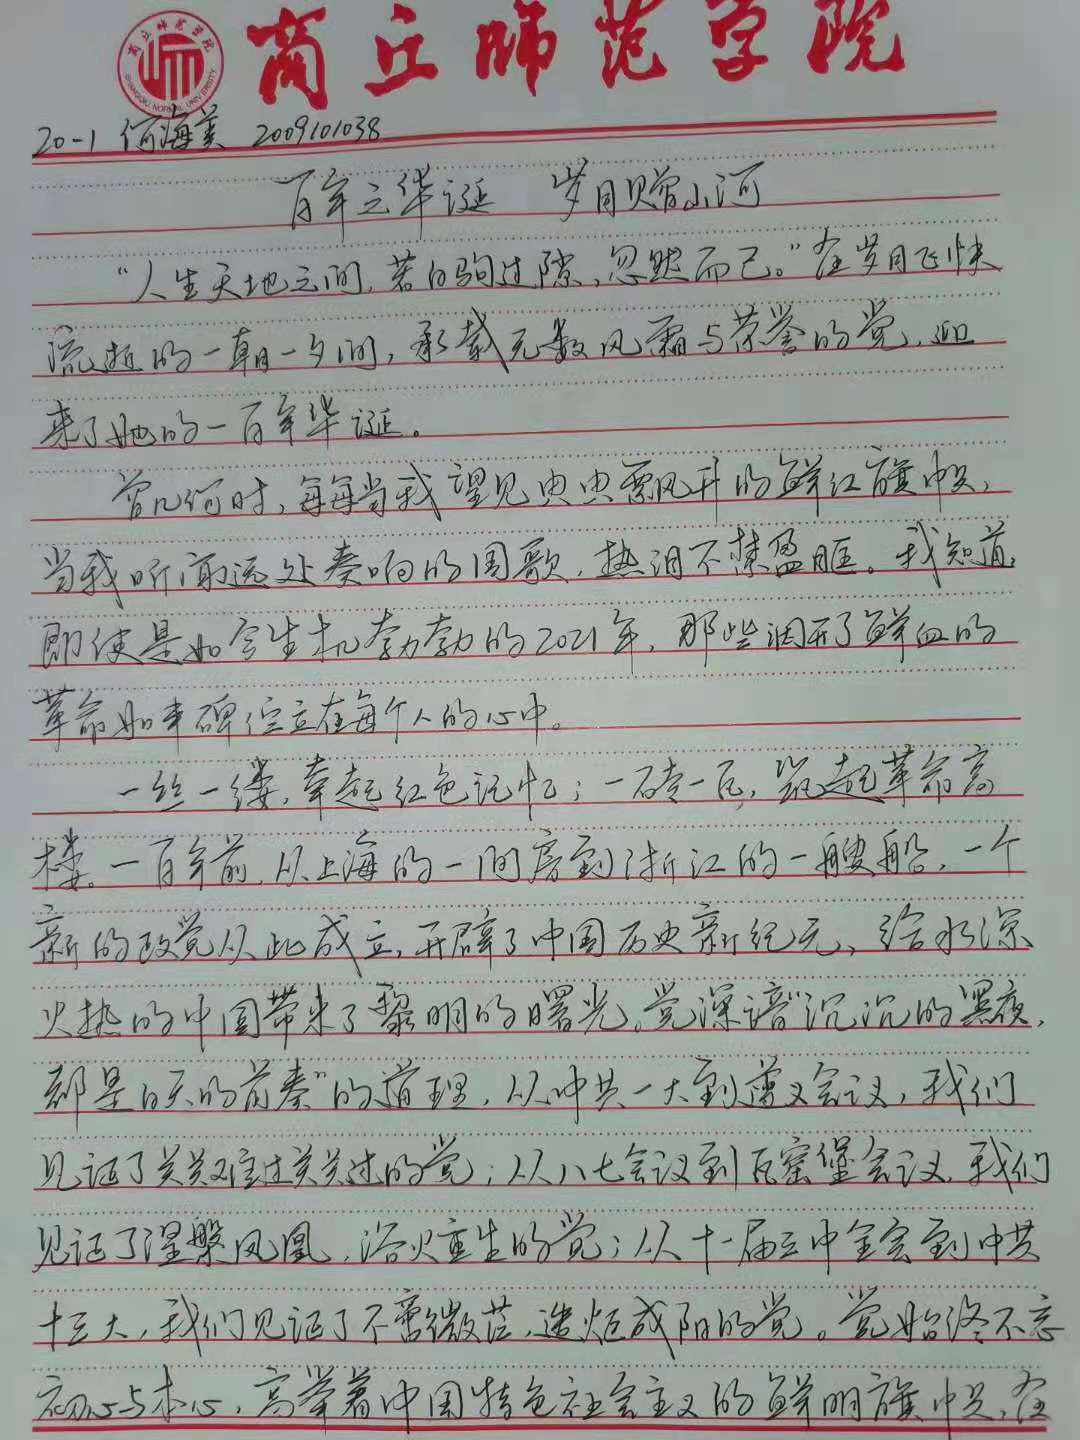 商丘师范学院
商丘师范学院
SHANGQIU NORMAL UNIVERSITY
20-1 何海美 2009101038
百年之华诞 岁月赠山河
“人生天地之间,若白驹过隙,忽然而已。”在岁月飞快
流逝的一朝一夕间,承载无数风霜与荣誉的党,迎
来了她的一百年华诞。
曾几何时,每每当我望见冉冉飘升的鲜红旗帜,
当我听闻远处奏响的国歌,热泪不禁盈眶。我知道,
即使是如今生机勃勃的2021年,那些洒下了鲜血的
革命如丰碑伫立在每个人的心中。
一丝一缕,牵起红色记忆;一砖一瓦,筑起革命高
楼。一百年前,从上海的一间房到浙江的一艘船,一个
新的政党从此成立,开辟了中国历史新纪元,给水深
火热的中国带来了黎明的曙光。党深谙“沉沉的黑夜,
都是白天的前奏”的道理,从中共一大到遵义会议,我们
见证了关关难过关关过的党;从八七会议到瓦窑堡会议,我们
见证了涅槃凤凰,浴火重生的党;从十一届三中全会到中共
十三大,我们见证了不啻微茫,造炬成阳的党。党始终不忘
初心与本心,高举着中国特色社会主义的鲜明旗帜,在